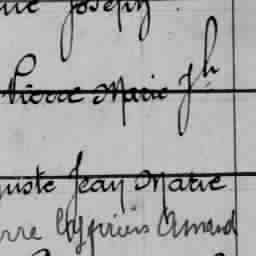 Joseph
Pierre Marie Jh
guste Jean Marie
rre Cyprien Armand